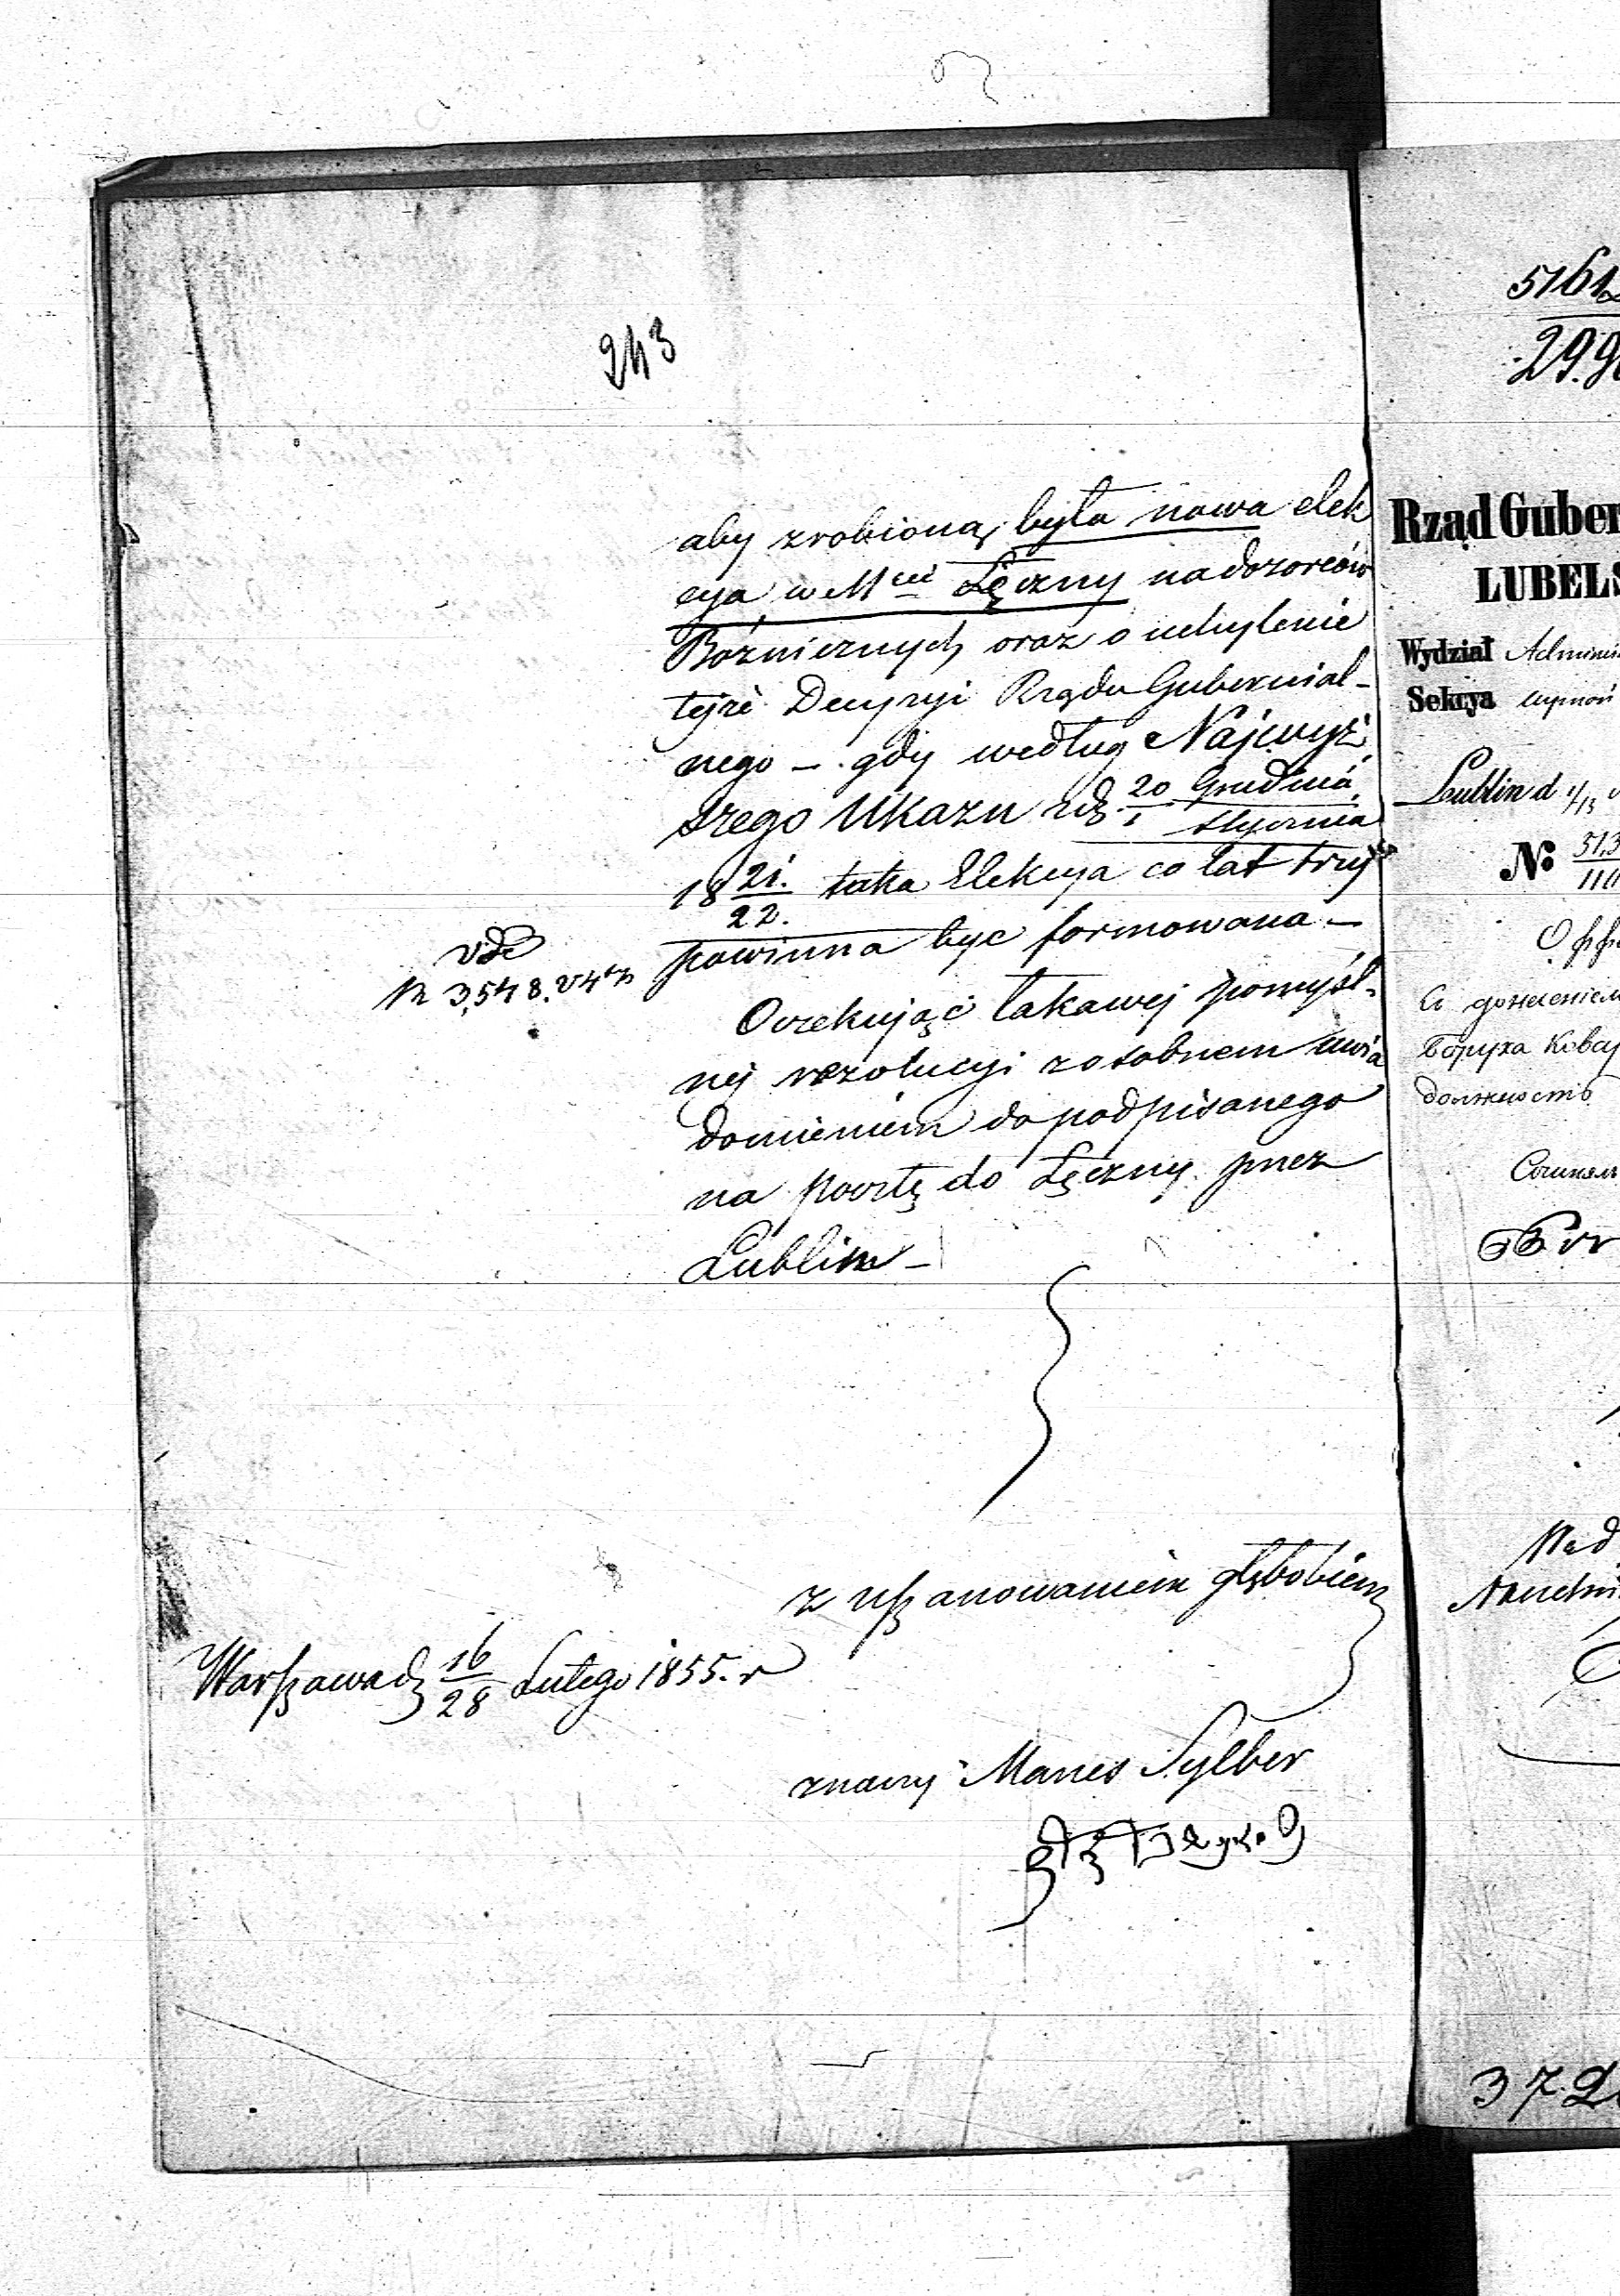 243
aby zrobioną była nowa elek
cya w Mcie Łęczny na dozorców
Bóżnicznych, oraz o uchylenie
tejże Decyzyi Rządu Gubernial-
nego - gdy według Najwyż
szego Ukazu z d. 20 Grudnia / 1 Stycznia
18 21/22. taka Elekcya co lat trzy
powinna być formowana -
vde
N 3548.
Oczekując takowej pomyśl-
nej rezolucyi z osobnem uwia
domieniem do podpisanego
na pocztę do Łęczny przez
Lublin -
z uszanowaniem głębokiem
Warszawa d. 16/28 Lutego 1855. r
znawy Manes Sylber
Rząd Guber
LUBELS
Wydział Adminis
Sekcya
Lublin d 1/13
№ 513
Боруха
должность
37.